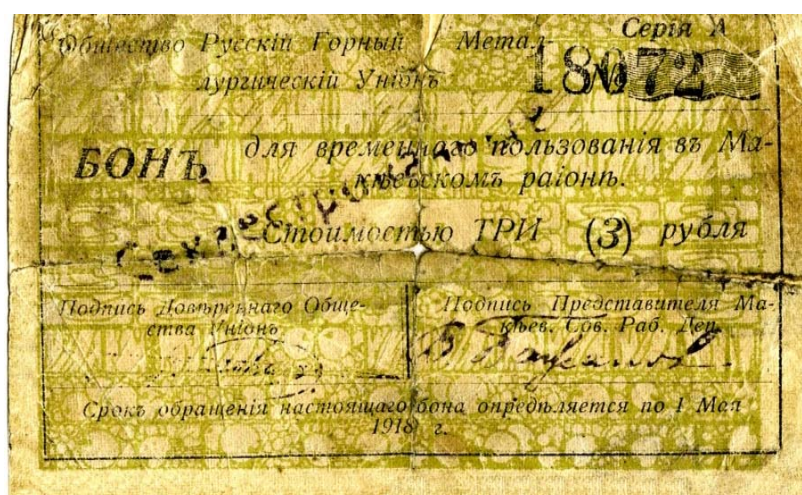 Общество Русскій Горный Метал- Серія А
лургическій Уніонъ 18672
БОНЪ для временнаго пользованія въ Ма-
кѣевскомъ раіонѣ.
Стоимостью ТРИ (3) рубля
Подпись Довѣреннаго Обще-
ства Уніонъ
Подпись Представителя Ма-
кѣев. Сов. Раб. Деп.
Срокъ обращенія настоящаго бона опредѣляется по 1 Мая
1918 г.